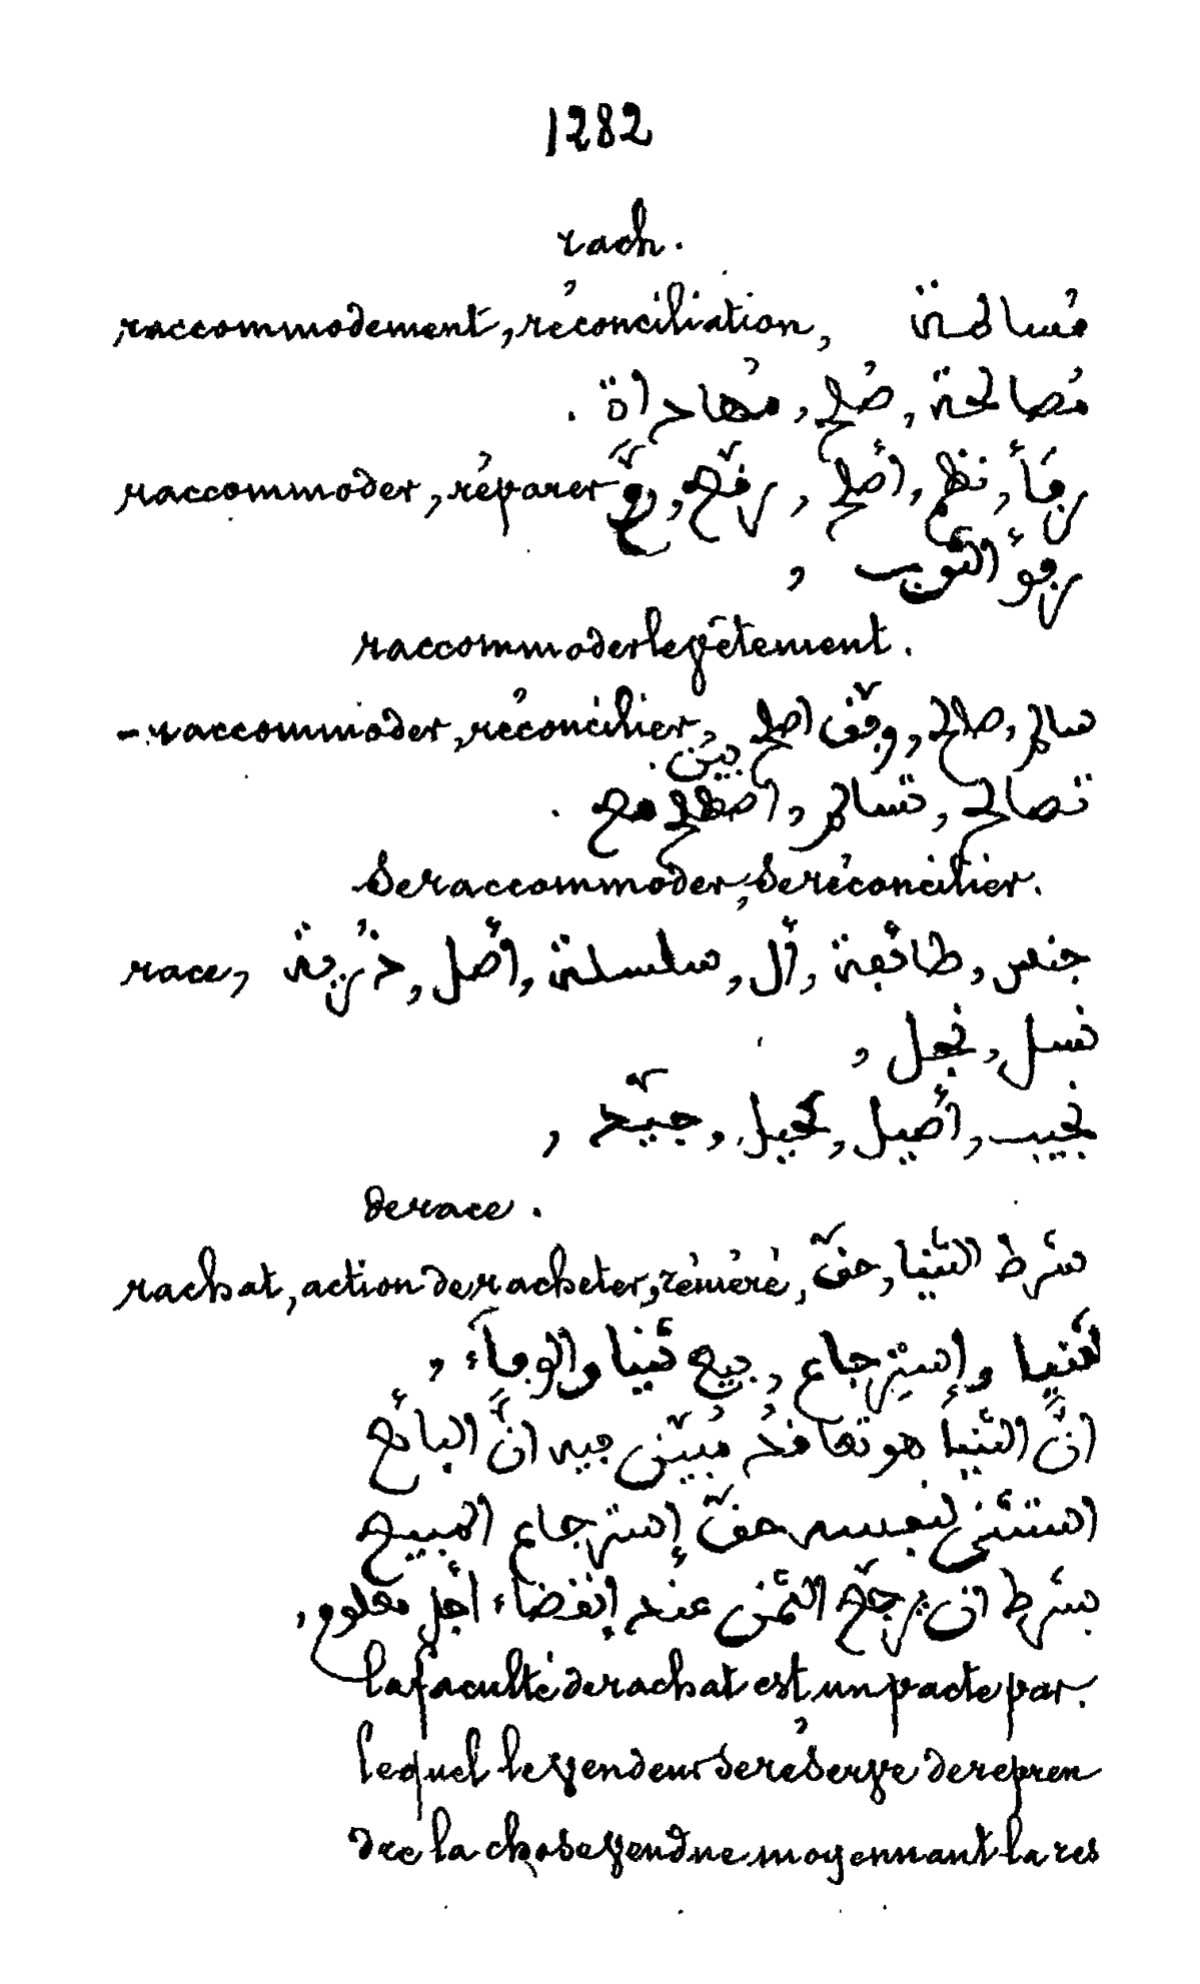 1282
rach.
raccommodement, réconciliation, مُسالمة
مُصالحة, صُلح, مُهاداة.
raccommoder, réparer رقأ, نظم, أصلح, رقّع,
رفوأ الثّوب,
raccommoder le vêtement.
- raccommoder, réconcilier, سالم, صالح, وفّق اصلح
بين.
تصالح, تسالم, اصطلح مع.
se raccommoder, se réconcilier.
race, جنس, طائفة, أل, سلسلة, أصل, ذُرية
نسل, نجل,
نجيب, أصيل, نحيل, جيّد,
de race.
rachat, action de racheter, réméré, شرط الثنيا, حقّ
لثنيا وإسترجاع, بيع ثنيا والوفاء,
انَّ الثنيا هو تعاقد مُبيّن فيه انَّ البائع
استثنى لنفسه حقّ إسترجاع المبيع
بشرط ان يرجّع الثمن عند إنقضاء أجل معلوم,
la faculté de rachat est un pacte par.
lequel le vendeur se réserve de repren
dre la chose vendue moyennant la res